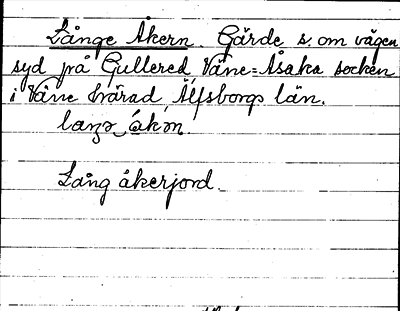 Långe Åkern. Gärde s. om vägen
syd frå Gullered, Väne=Åsaka socken
i Väne härad, Älfsborgs län.
laŋə åkən.
Lång åkerjord.